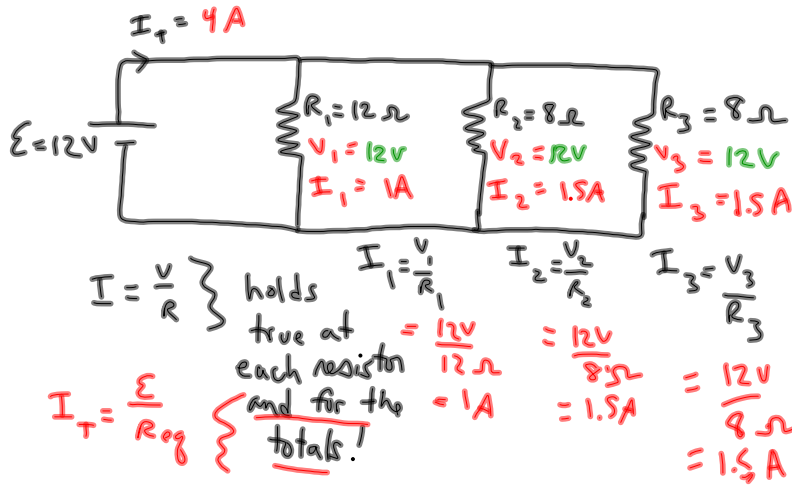 I_T = 4A
ε = 12V
R_1 = 12Ω
V_1 = 12V
I_1 = 1A
R_2 = 8Ω
V_2 = 12V
I_2 = 1.5A
R_3 = 8Ω
V_3 = 12V
I_3 = 1.5A
I = V/R } holds
true at
each resistor
and for the
totals!
I_T = ε/R_eq {
I_1 = V_1/R_1
= 12V/12Ω
= 1A
I_2 = V_2/R_2
= 12V/8Ω
= 1.5A
I_3 = V_3/R_3
= 12V/8Ω
= 1.5A